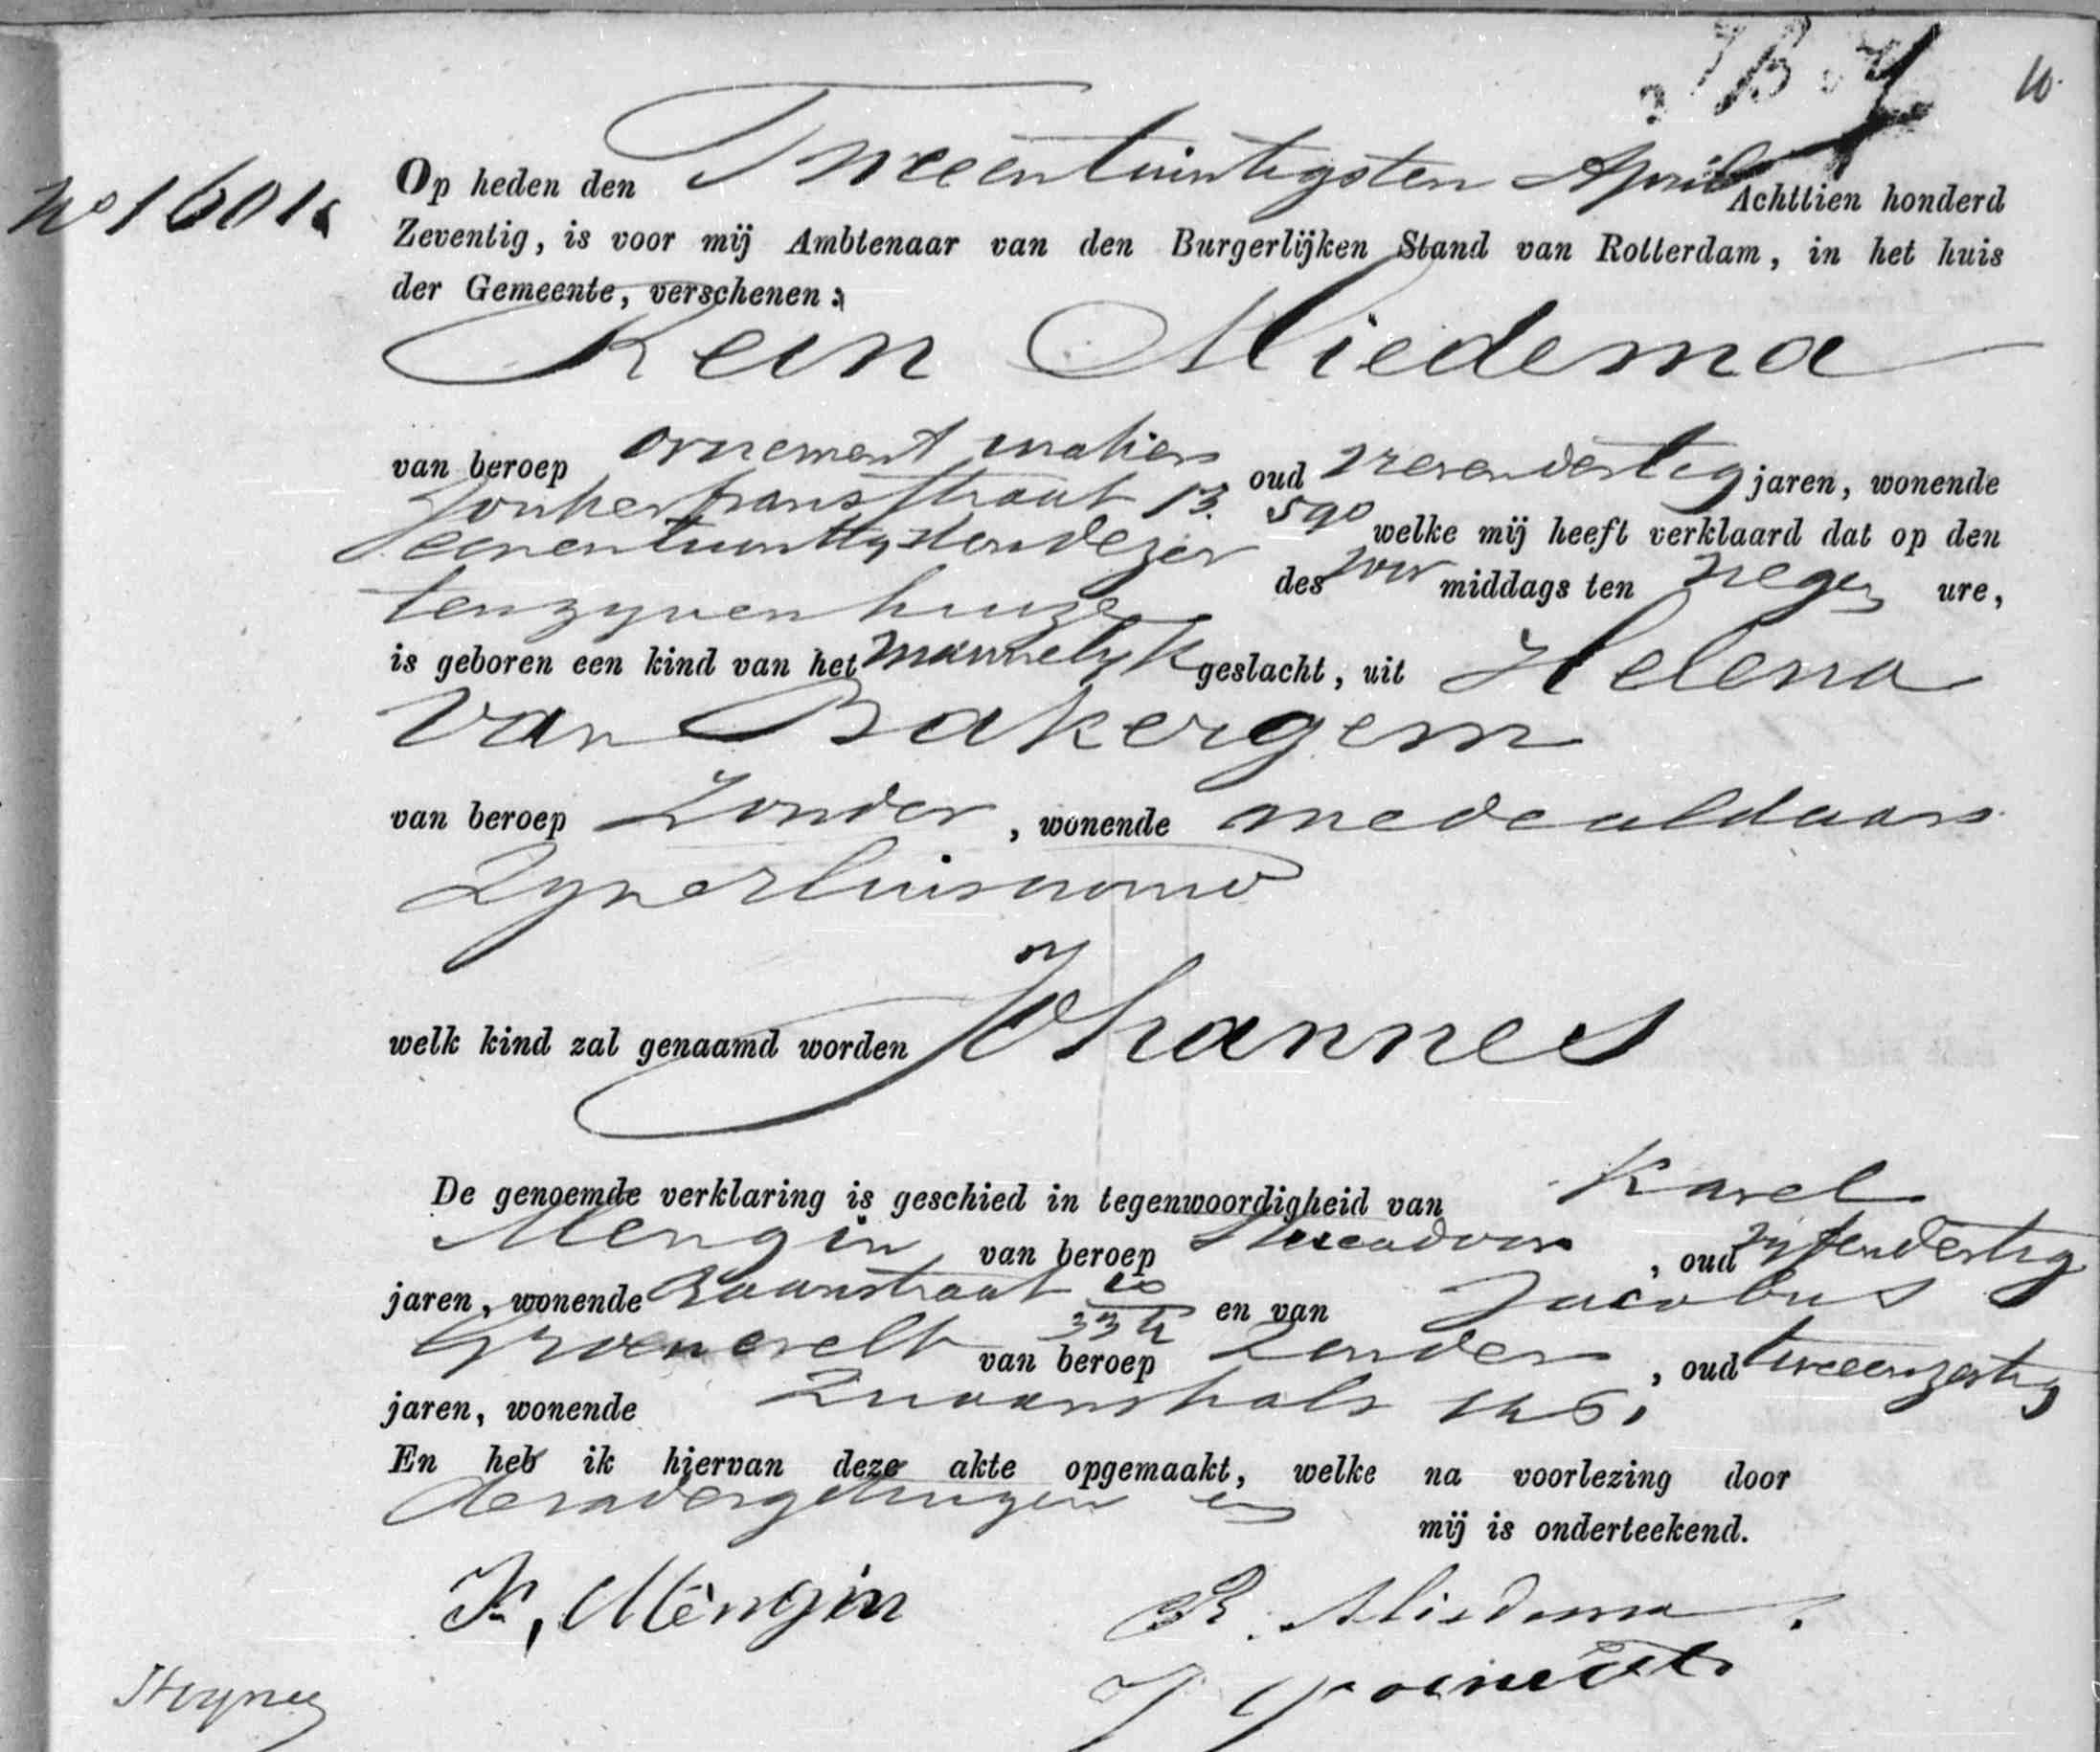 10.
No 1601.
Op heden den Tweeentwintigsten April Achttien honderd
Zeventig, is voor mij Ambtenaar van den Burgerlijken Stand van Rotterdam, in het huis
der Gemeente, verschenen:
Rein Miedema
van beroep ornement maker oud zevendertig jaren, wonende
Jonkerfransstraat 13. 590 welke mij heeft verklaard dat op den
eenentwintigsten dezer des voor middags ten negen ure,
ten zynen huize
is geboren een kind van het mannelyk geslacht, uit Helena
van Bakergem
van beroep Zonder, wonende mede aldaar
Zyne huisvrouw
welk kind zal genaamd worden Johannes
De genoemde verklaring is geschied in tegenwoordigheid van Karel
Mengin, van beroep, oud vyfendertig
jaren, wonende Baanstraat en van Jacobus
Groeneveldt van beroep Zonder, oud tweeenzestig
jaren, wonende Zwaanshals
En heb ik hiervan deze akte opgemaakt, welke na voorlezing door
de en mij is onderteekend.
K, Mèngin R. Miedema.
J Groeneveldt